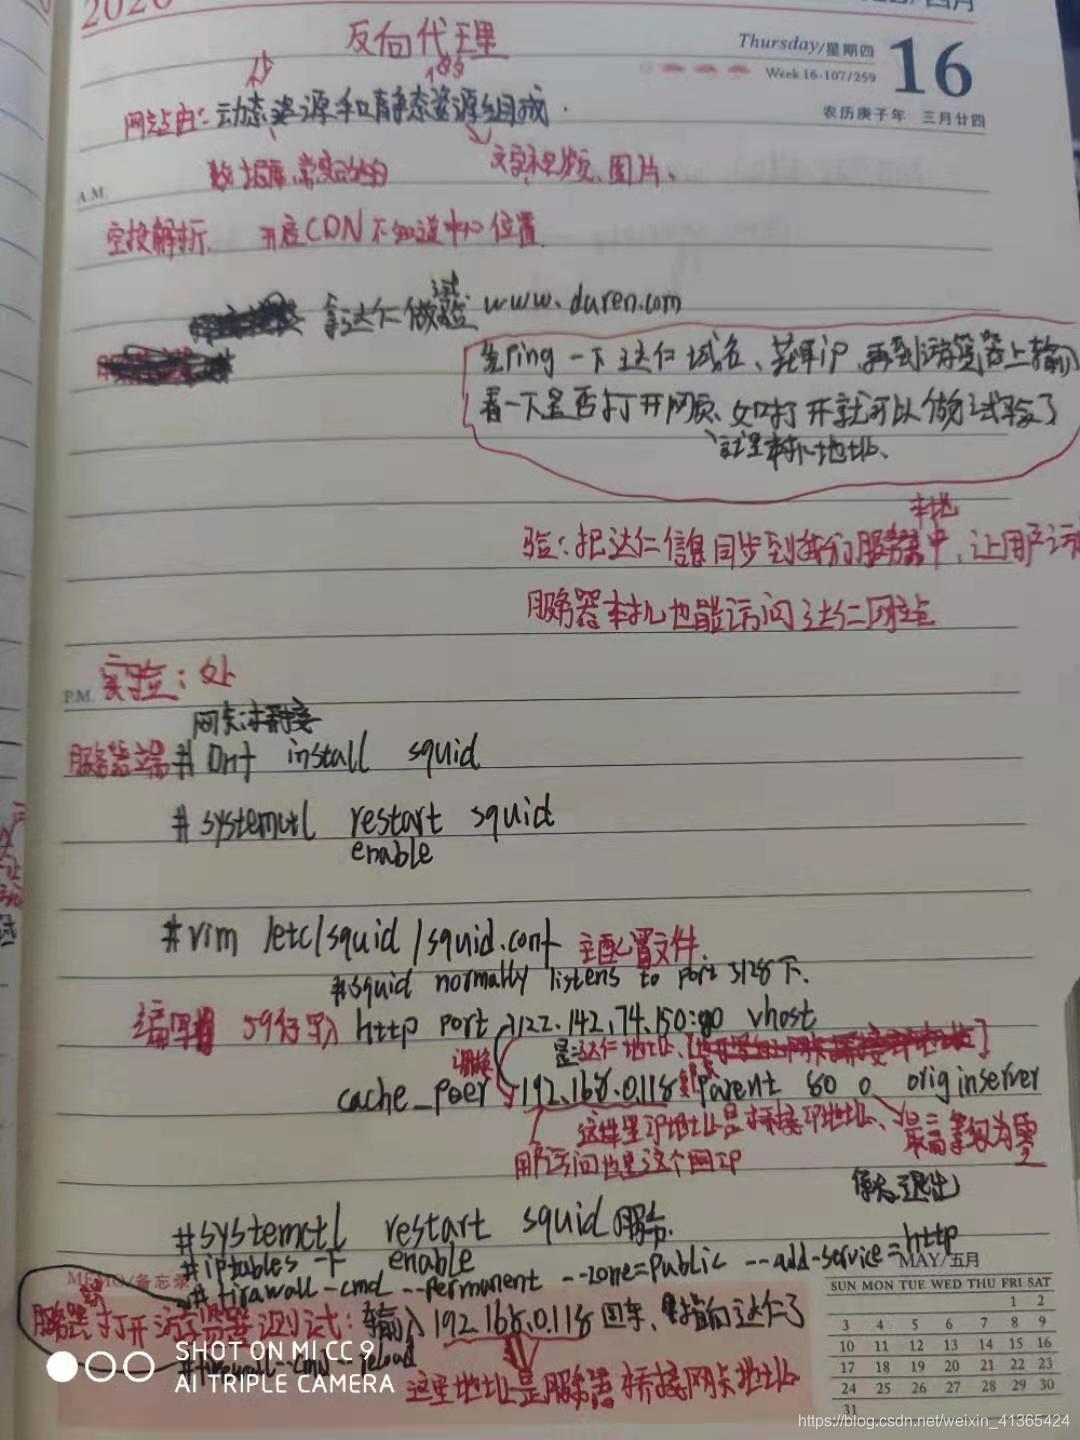 2020
Thursday/星期四
Week 16·107/259
16
农历庚子年 三月廿四
反向代理
网站由: 动态资源和静态资源组成.
数据库、常变动的
文字视频、图片、
A.M.
解析. 开启CDN不知道中心位置
拿达仁做试验 www.daren.com
先Ping一下达仁域名、获取ip 再到游览器上输入
看一下是否打开网页、如打开就可以做试验了
这里本机地址、
验: 把达仁信息同步到我们服务器中,让用户访
本地
服务器本机也能访问达仁网站
P.M.
实验: 处
网卡桥接
服务器端 # dnf install squid
# systemctl restart squid
enable
#vim /etc/squid/squid.conf 主配置文件.
#squid normally listens to port 3128下.
编写 59行写入 http port 122.142.74.150:90 vhost
是:达仁地址、
cache_peer 192.168.0.118 parent 80 0 originserver
这里IP地址是桥接IP地址、 最高等级为零
用户访问也是这个网IP
保存退出
#systemctl restart squid服务.
enable
#iptables -F
# firewall-cmd --permanent --zone=public --add-service=http
MEMO/备忘录
服务器端打开游览器测试: 输入192.168.0.118回车、指向达仁了
#firewall-cmd --reload
这里地址是服务器桥接网卡地址
MAY/五月
SUN MON TUE WED THU FRI SAT
1 2
3 4 5 6 7 8 9
10 11 12 13 14 15 16
17 18 19 20 21 22 23
24 25 26 27 28 29 30
31
SHOT ON MI CC 9
AI TRIPLE CAMERA
https://blog.csdn.net/weixin_41365424